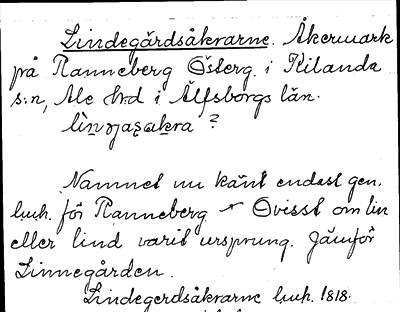 Lindegärdsåkrarne. Åkermark
på Ranneberg Österg. i Kilanda
s:n, Ale hrd i Älfsborgs län.
Namnet nu känt endast gen.
luk. för Ranneberg Ovisst om lin
eller lind varit ursprung. Jämför
Linnegården.
Lindegerdsåkrarne luk. 1818.